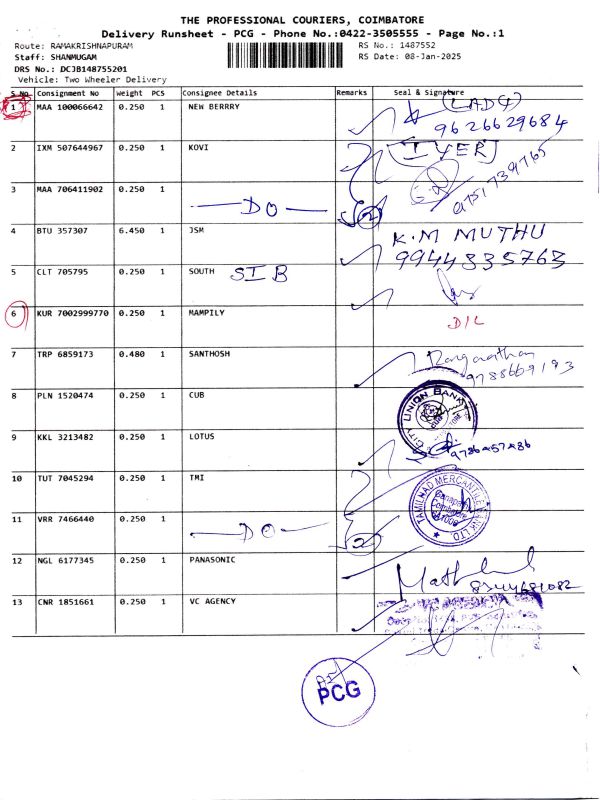 THE PROFESSIONAL COURIERS, COIMBATORE
Delivery Runsheet - PCG - Phone No.:0422-3505555 - Page No.:1
Route: RAMAKRISHNAPURAM RS No.: 1487552
Staff: SHANMUGAM RS Date: 08-Jan-2025
DRS No.: DCJB148755201
Vehicle: Two Wheeler Delivery
S.No Consignment No Weight PCS Consignee Details Remarks Seal & Signature
1 MAA 100066642 0.250 1 NEW BERRRY
9626629684
2 IXM 507644967 0.250 1 KOVI IYER
9751739765
3 MAA 706411902 0.250 1 DO 2
4 BTU 357307 6.450 1 JSM K.M MUTHU
9944835763
5 CLT 705795 0.250 1 SOUTH SIB
6 KUR 7002999770 0.250 1 MAMPILY D/L
7 TRP 6859173 0.480 1 SANTHOSH Ranganathan
9788669193
8 PLN 1520474 0.250 1 CUB CITY UNION BANK
9 KKL 3213482 0.250 1 LOTUS
10 TUT 7045294 0.250 1 TMI TAMILNAD MERCANTILE BANK LTD.
Ganapathy
Coimbatore
11 VRR 7466440 0.250 1 DO 2
12 NGL 6177345 0.250 1 PANASONIC
13 CNR 1851661 0.250 1 VC AGENCY
PCG